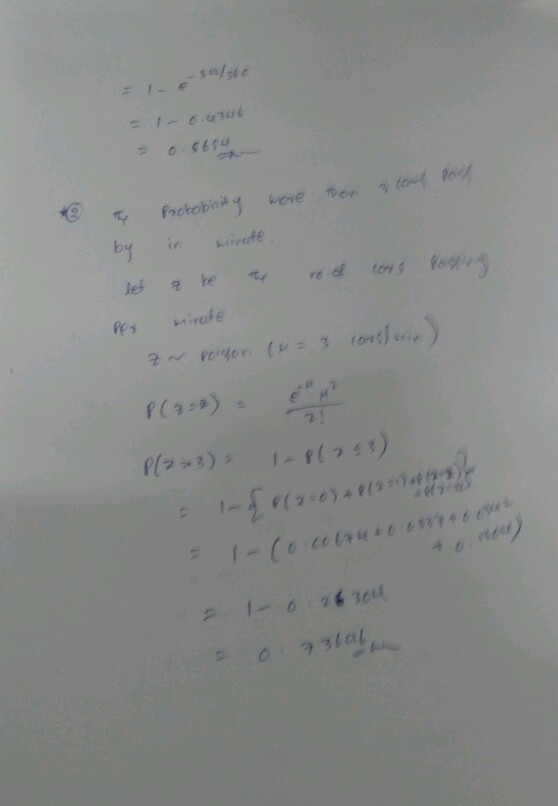 = 1 - e^-300/360
= 1 - 0.4346
= 0.5654
② The Probability more than 3 cars pass
by in minute.
let z be the no. of cars passing
per minute
z ~ poison (μ = 3 cars/min)
P(z=z) = e^-μ μ^z / z!
P(z>3) = 1 - P(z≤3)
= 1 - { P(z=0) + P(z=1) + P(z=2) + P(z=3)}
= 1 - (0.00674 + 0.0337 + 0.0842 + 0.1404)
= 1 - 0.26304
= 0.73696